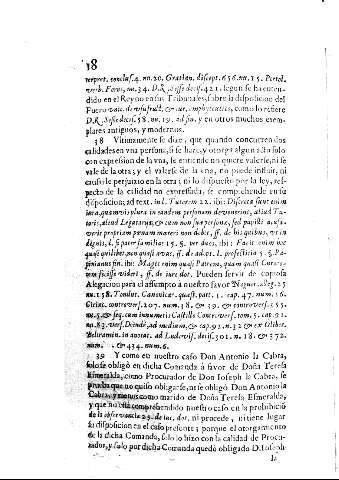 18
terpret. conclus. 4. nu. 20. Gratian. discept. 656. nu. 15. Portol.
verb. Forus, nu. 34. D. R. Sesse decis. 421. segun se ha enten-
dido en el Reyno en sus Tribunales, sobre la disposicion del
Fuero unic. de usufruct. emphyteutico, como lo refiere
D. R. Sesse decis. 58. nu. 19. ad fin. y en otros muchos exem-
plares antiguos, y modernos.
38 Vltimamente se dize, que quando concurren dos
calidades en vna persona, si se haze, y otorga algun acto solo
con expression de la vna, se entiende no quiere valerse, ni se
vale de la otra; y el valerse de la vna, no puede influir, ni
causar le perjuizio en la otra; ni lo dispuesto por la ley, res-
pecto de la calidad no expressada, se comprehende en su
disposicion; ad text. in l. Tutorem 22. ibi: Discreta sunt enim
iura, quamvis plura in eandem personam devenerint, aliud Tu-
toris, aliud Legatarij; & cum non suae personae, sed pupilli
veris propriam poenam mereri non debet, ff. de his quibus, ut in-
dignis, l. si pater familias 15. §. ver duas, ibi: Facit enim me
quasi quilibet, non quasi avus, ff. de adopt. l. professitia 5. §. Pa-
pinianus fin. ibi: Magis enim quasi Patrem, quam quasi Curato-
rem fecisse videri, ff. de iure dot. Pueden servir de copiosa
Alegacion para el assumpto à nuestro favor Noguer. alleg. 25
nu. 158. Tondut. Canonicar. quaest. part. 1. cap. 47. num. 16.
Giriac. controvers. 207. num. 38. & 39. & controvers. 355.
nu. 5. & seq. cum innumeris Castillo Controvers. tom. 5. cap. 92.
nu. 83. vers. Deinde, ad medium, & cap. 92. n. 32 & ex Gliber.
Beltramin. in annot. ad Ludovis. decis. 301. n. 18. & 372.
num. & 434. num. 6.
39 Y como en nuestro caso Don Antonio la Cabra,
solo se obligò en dicha Comanda à favor de Doña Teresa
Esmeralda, como Procurador de Don Ioseph la Cabra, se
prueba que no quiso obligarse, ni se obligò Don Antonio la
Cabra, y menos como marido de Doña Teresa Esmeralda,
y que no està comprehendido nuestro caso en la prohibiciò
de la observancia 29. de iur. dot. ni procede, ni tiene lugar
su disposicion en el caso presente; porque el otorgamiento
de la dicha Comanda, solo lo hizo con la calidad de Procu-
rador, y solo por dicha Comanda quedò obligado D. Ioseph
la